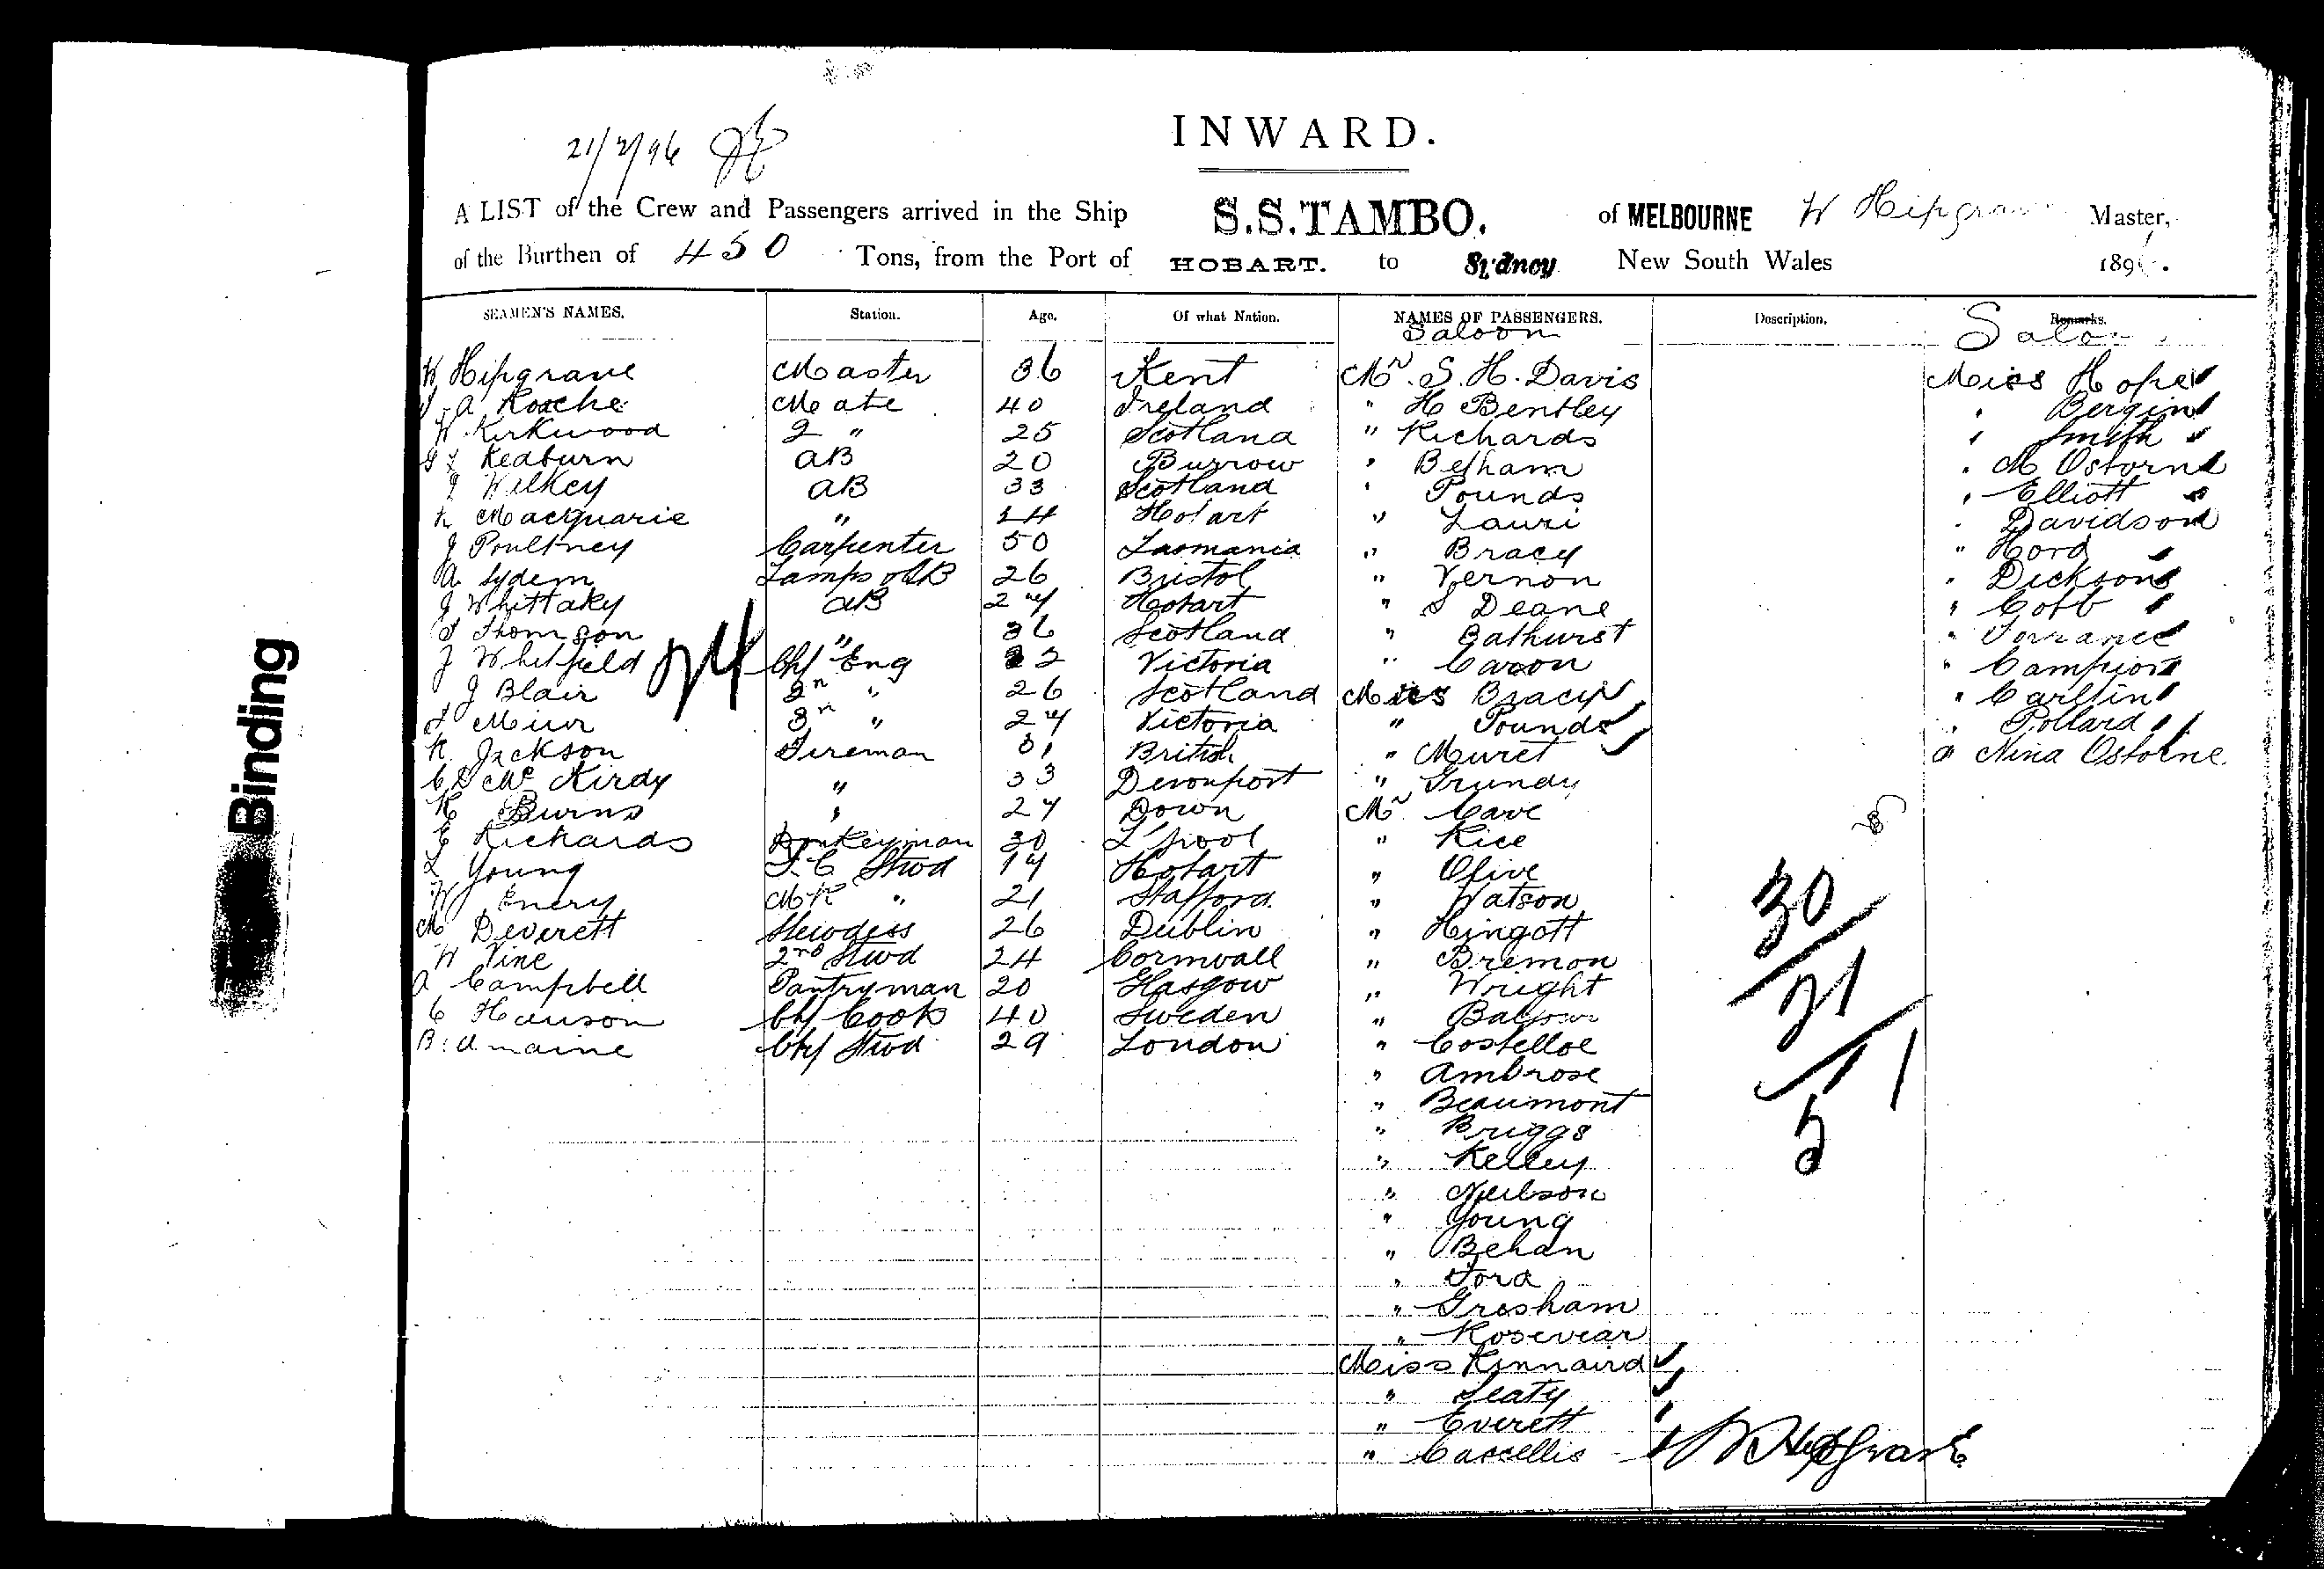 INWARD.
21/2/96
A LIST of the Crew and Passengers arrived in the Ship S.S.TAMBO. of MELBOURNE W Hipgrave Master,
of the Burthen of 450 Tons, from the Port of HOBART. to Sydney New South Wales 189
SEAMEN'S NAMES. Station. Age. Of what Nation. NAMES OF PASSENGERS. Description. Remarks.
Saloon Saloon
W Hipgrave Master 36 Kent Mr. S. H. Davis Miss Hope
A Roache Mate 40 Ireland " H Bentley " Bergin
W. Kirkwood 2 " 25 Scotland " Richards " Smith
Redburn AB 20 Burrow " Betham " M Osborne
Wilkey AB 33 Scotland " Pounds " Elliott
R Macquarie " 24 Hobart " Lauri " Davidson
J Poultney Carpenter 50 Tasmania " Bracy " Hord
A Sydem Lamps & AB 26 Bristol " Vernon " Dickson
J Whittaky AB 24 Hobart " S Deane " Cobb
T Thomson " 36 Scotland " Bathurst " Torrance
J Whitfield Chf Eng 32 Victoria " Caxon " Campion
J Blair 2n " 26 Scotland Miss Bracy " Carlin
Muir 3n " 24 Victoria " Pounds " Pollard
R. Jackson Fireman 31 British " Muret " Nina Osborne.
C D Mc Kirdy " 33 Devonport " Grundy
H Burns " 24 Down Mr Cave
E Richards Donkeyman 30 L'pool " Rice
L Young F.C Stwd 14 Hobart " Olive
W Enery MR " 21 Stafford " Watson
M Deverett Stewdess 26 Dublin " Hingott
W Vine 2nd Stwd 24 Cornwall " Bremon
A Campbell Pantryman 20 Glasgow " Wright
C Hanson Chf Cook 40 Sweden "
maine Chf Stwd 29 London " Costelloe
" Ambrose
" Beaumont
" Briggs
" Kelley
" Neilson
" Young
" Behan
" Ford
" Gresham
" Rosevear
Miss Kinnaird
" Leaty
" Everett
" Cascellis
W Hipgrave
24
30
21
11
5
Binding